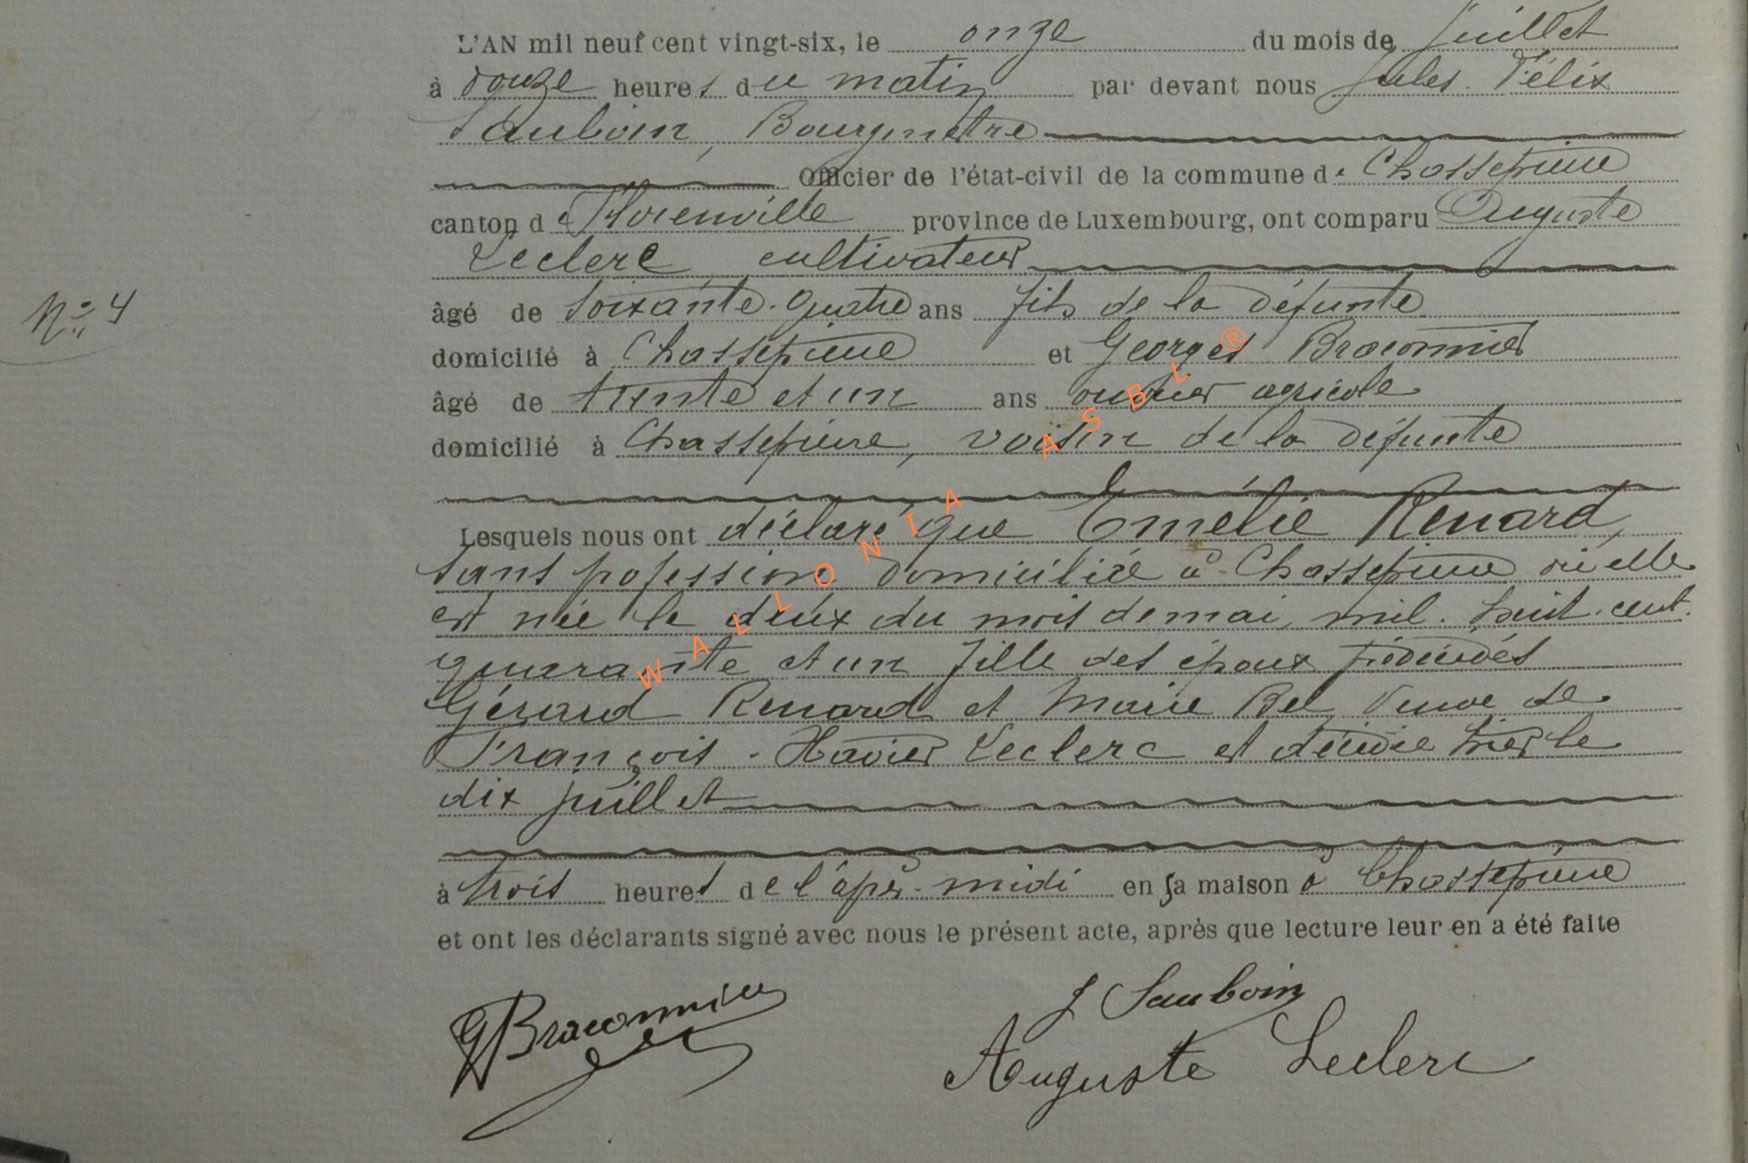 L'AN mil neuf cent vingt-six, le onze du mois de Juillet
à douze heures du matin par devant nous Jules Félix
Sauboin, Bourgmetre
Officier de l'état-civil de la commune de Chassepierre
canton de Florenville province de Luxembourg, ont comparu Auguste
Leclerc cultivateur
N° 4
âgé de soixante-quatre ans fils de la défunte
domicilié à Chassepierre et Georges Braconnier
âgé de trente et un ans ouvrier agricole
domicilié à Chassepierre, voisin de la défunte
Lesquels nous ont déclaré que Emélie Renard,
sans profession domiciliée à Chassepierre où elle
est née le deux du mois de mai mil. huit. cent.
quarante et un fille des époux prédécédés
Gérard Renard et Marie Bel Veuve de
François-Xavier Leclerc et décédée hier le
dix juillet
à trois heures de l'après-midi en sa maison à Chassepierre
et ont les déclarants signé avec nous le présent acte, après que lecture leur en a été faite
G Braconnier
J Sauboin
Auguste Leclerc
WALLONIA ASBL ®